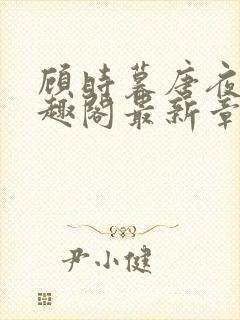 顾时暮唐夜
趣阁最新章
尹小健